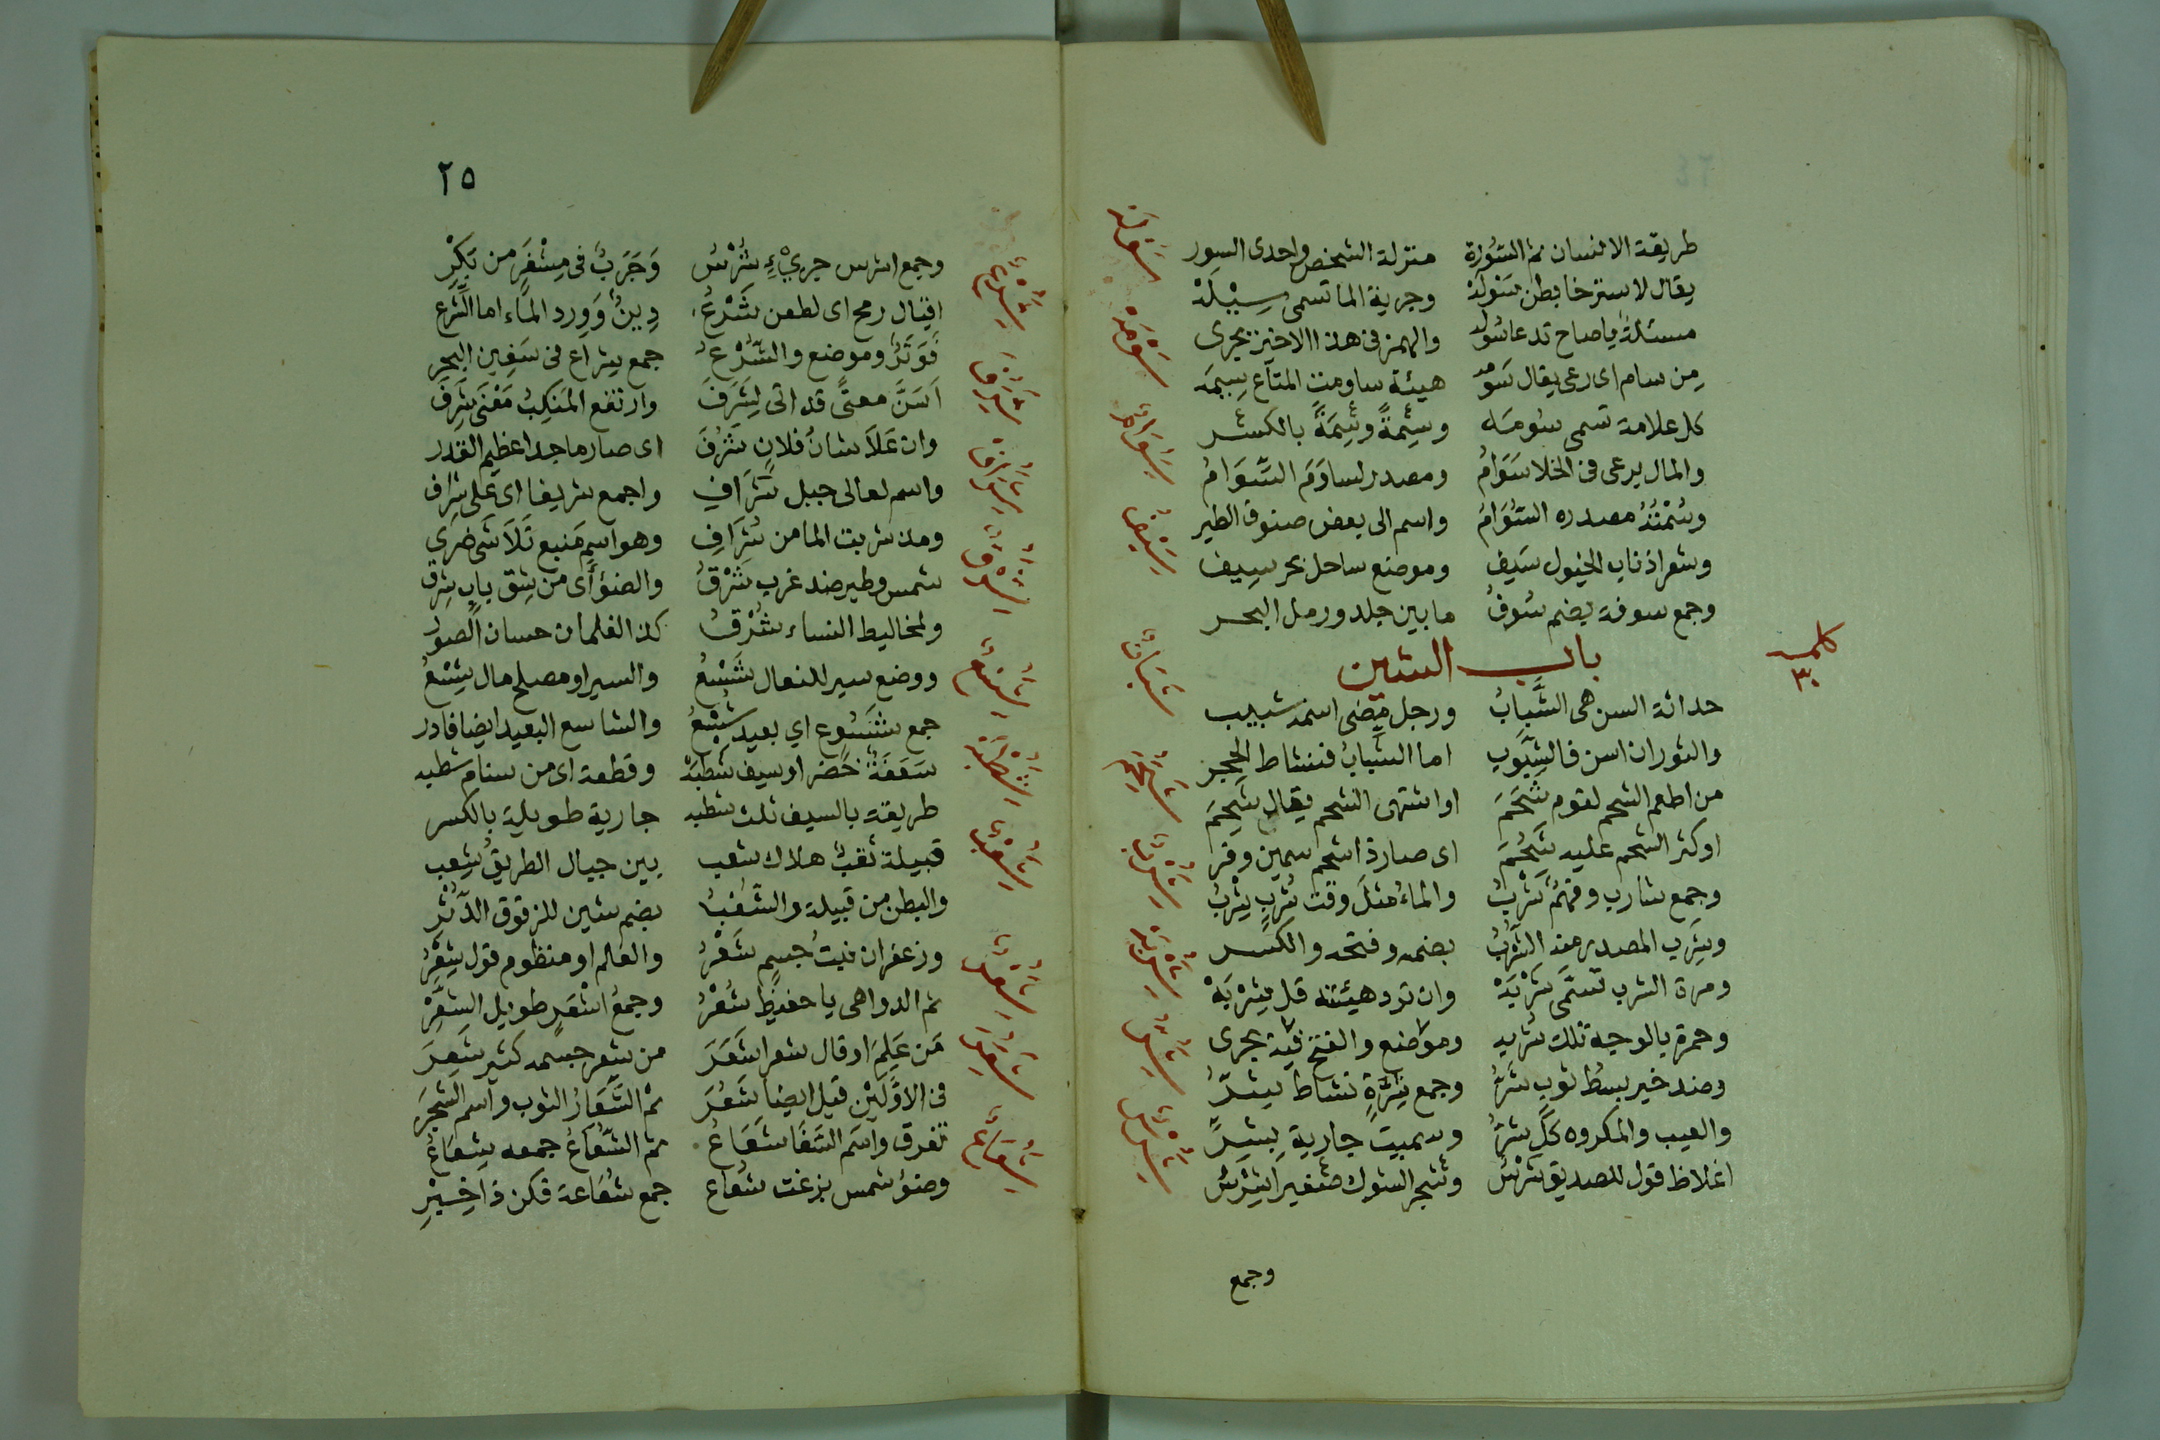 طريقة الانسان ثم السُورة منزلة الشخص واحدى السور
يقال لاسترخا بطن سَوْلَة وجرية الما تسمى سِيْلَة
مسئلة ياصاح تدعا سُولَه والهمز فى هذا الاخيز يجرى
مِن سام اى رعى يقال سَومه هيئة ساومت المتاع سِيمَه
كل علامة تسمى سُومَه وسِئِمةً وسِئِمَةً بالكسر
والمال يرعى فى الخلا سَوَامُ ومصدر لساوَمَ السِّوَامُ
وسُمْتُهُ مصدره السُّوَامُ واسم الى بعض صنوف الطير
وشعر اذناب الخيول سَيف وموضع ساحل بحر سِيف
وجمع سوفة بضم سُوفُ ما بين جلد ورمل البحر
باب الشين
كلمه ٣٠
حداثة السن هى الشَّبابُ ورجل مضى اسمه شبيب
والثوران اسن فالشِّبُوب اما الشِّبابُ فنشاط الحجر
من اطعم الشحم لقوم شَحَمَ او اشتهى الشحم يقال شَحِمَ
او كثر الشحم عليه شَحُمَ اى صار ذا شحم سمين وفر
وجمع شارب وفهمٌ شَرْبُ والماءُ مثلَ وقت شُربٍ شِرْبُ
وشَرِب المصدر منه الشُّرْبُ بضمه وفتحه والكسر
ومرة الشرب تسمَّى شَرْبَة وان ترد هيئته قل شِرْبَة
وحمرة بالوجه تلك شربه وموضع والفتح فيه يجرى
وضد خير بسط ثوب شَرُّ وجمع شِرَّةٍ نشاط شِرُّ
والعيب والمكروه كلٌ شرُّ وسميت جارية بِشِرِّ
اغلاظ قول للصديق شَرْسُ وشجر الشوك صغيرا شِرْسُ
وجمع
سَوْلَة
سَوْمَه
سَوَامٌ
سَيْفٌ
شَبَابٌ
شَحِمَ
شَرْبٌ
شَرْبَة
شَرٌّ
شَرْسٌ
٢٥
وجمع اشرس جرىْءٍ شُرْسُ وَجَرَبٌ فى مِشْفَرٍ من بَكْرِ
اقبال رمح اى لطعن شَرْعُ دِينٌ وَورد الماء اما الشِّرع
فَوَتَرٌ وموضع والشُّرْعُ جمع شِراع فى سَفِين البحر
اَسَنَّ معنىً قد اتى لِشَرَفَ وارتفع المَنكِبُ مَعْنَى شَرِفَ
وان عَلاَ شانُ فلانٍ شَرُفَ اى صار ماجدا عظيم القَدر
واسم لعالى جبل شَرَافِ واجمع شريفا اى عَلى شِراف
ومذ شربت الما من شُرَافِ وهو اسم مَنبع تَلاَشَى ضررى
شمس وطير ضد غرب شَرْقُ والضؤ أى من شِق باب شِرق
ولمخاليط النساء شُرْقُ كذا الغلمان حسان الصور
ووضع سير للنعال شَسْعُ والسير او مصلح مال شِسْعُ
جمع شَسُوع اي بعيد شُسْعُ والشاسع البعيد ايضا فادر
سَعَفَةٌ خضرا وسيف شَطْبَة وقطعة اى من سنام شطبه
طريقة بالسيف تلك شطبه جارية طويلة بالكسر
قبيلة ثقبٌ هلاك شعب بين جبال الطريقُ شِعب
والبطن من قبيلة والشُعْبُ بضم شين للزقوق الدُّثْر
وزعفران نبتُ جسمٍ شَعْرُ والعلم او منظوم قول شِعْرُ
ثم الدواهى يا حفيظ شُعْرُ وجمعُ اشْعَرٍ طويل الشعَرِ
مَن عَلِمَ اوقال شعرا شَعَرَ من شعر جسمه كثير شَعِرَ
فى الاوَّلَيْنِ قيل ايضا شَعُرَ ثم الشِّعَارُ الثوب واسم الشجر
تفرق واسم السَفا شَعَاعُ ثم الشُّعَاعُ جمعه شِعَاعُ
وضؤ شمس بزغت شُعاع جمع شُعَاعة فكن ذا خِيرِ
شَرْعٌ
شَرَفَ
شَرَافِ
شَرْقٌ
شَسْعٌ
شَطْبَة
شَعْبٌ
شَعْرٌ
شَعَرَ
شَعَاعٌ